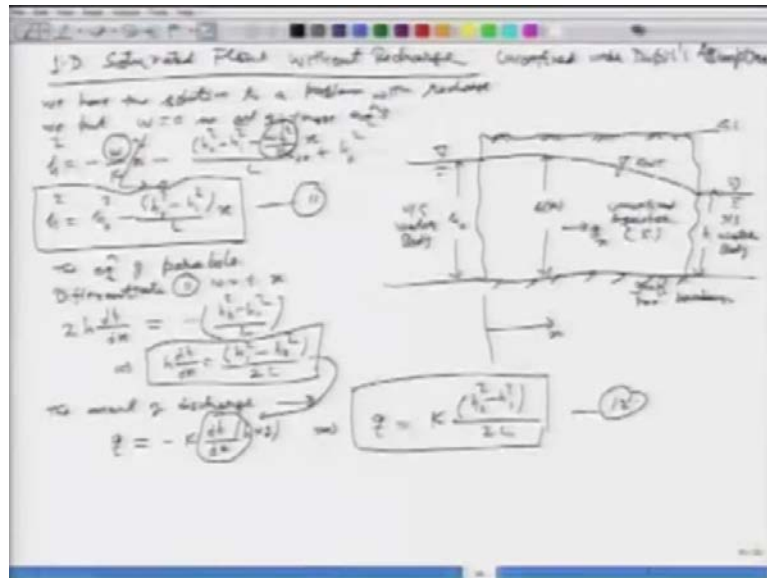 1-D Saturated Flow without Recharge Unconfined under Dupit's Assumption
we have the solution to a problem with recharge
we put w=0
h² = - w/K x - (h₀² - h₁² - wL²/K)/L x + h₀²
h² = h₀² - (h₀² - h₁²)/L x — (11)
The eqⁿ of parabola
Differentiate (11) w.r.t x
2h dh/dx = - (h₀² - h₁²)/L
⇒ h dh/dx = (h₁² - h₀²)/2L
The amount of discharge
q = - K dh/dx (h×1) ⇒ q = K (h₀² - h₁²)/2L — (12)
G.L
GWT
U/S water body
h₀
h(x)
q_x
unconfined aquifer
h₁
D/S water body
x